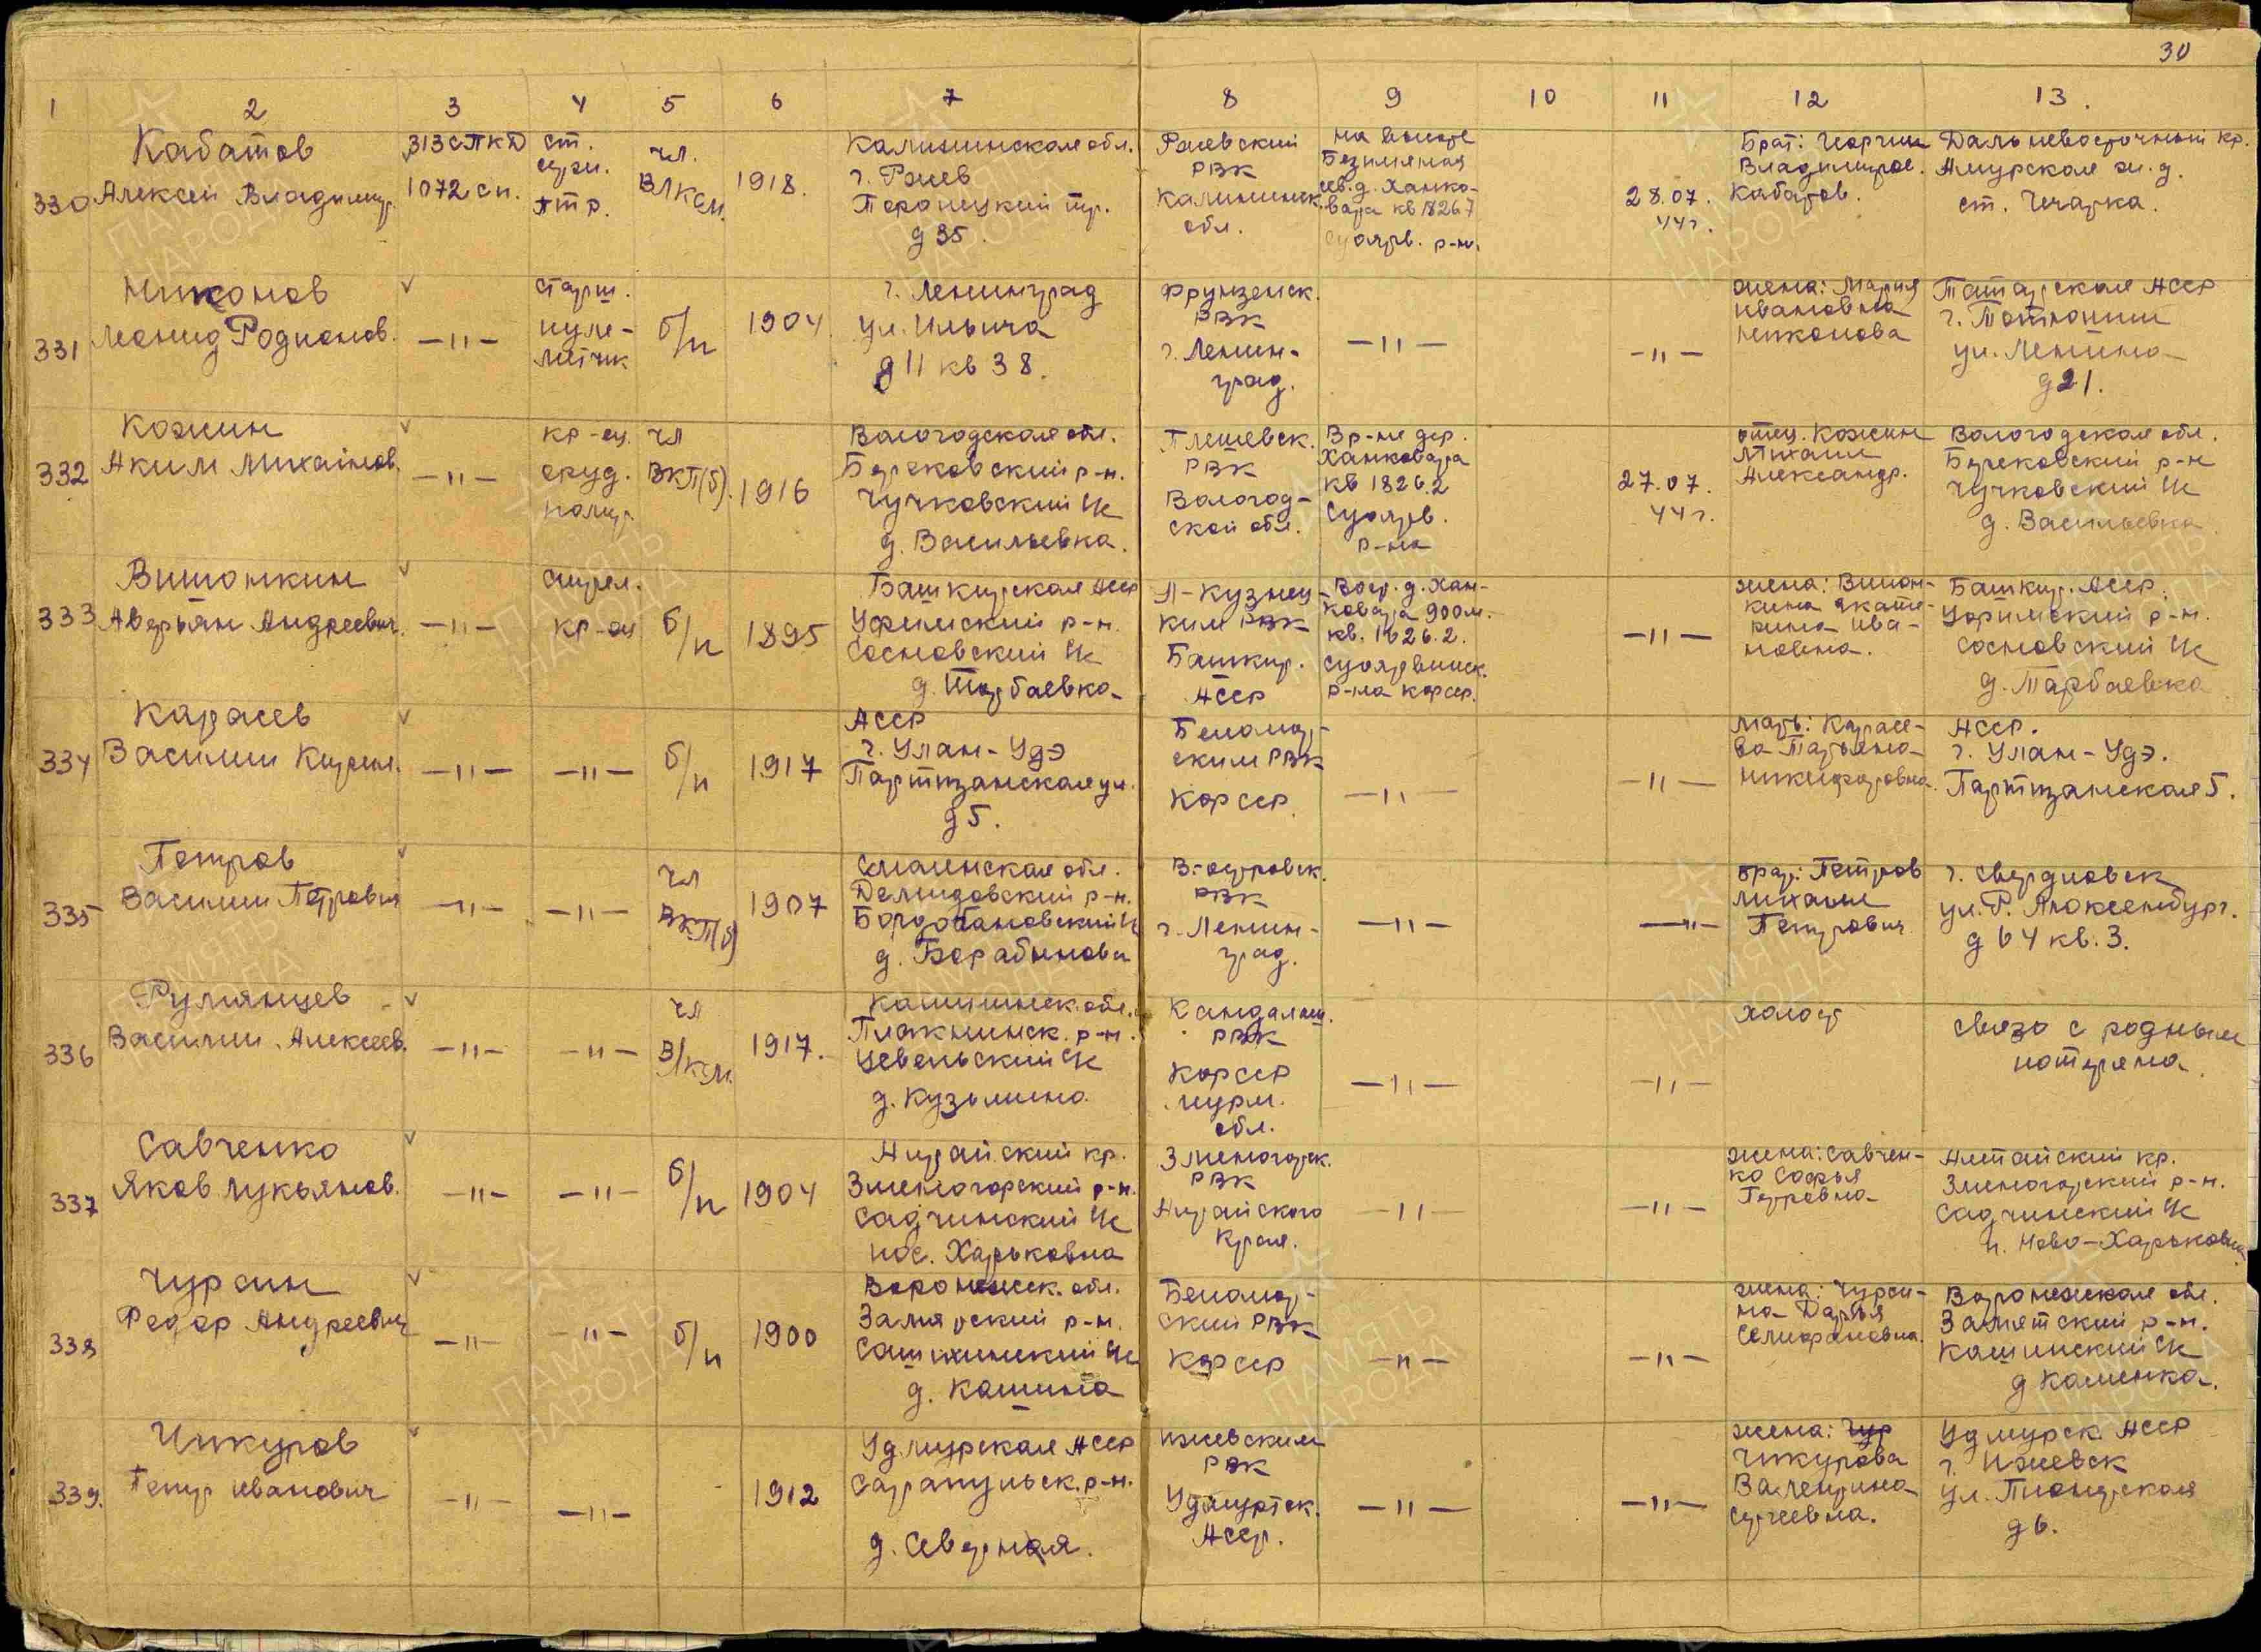 30
1 2 3 4 5 6 7 8 9 10 11 12 13.
330
Кабатов
Алексей Владимир.
313 сПКД
1072 сп.
ст.
серж.
птр.
чл.
ВЛКСМ.
1918.
Калининская обл.
г. Ржев
пр.
д 35.
Ржевский
РВК
Калининск.
обл.
на высоте
Безымяная
сев. д. Ханко-
вара кв 1826 7
Суоярв. р-н.
28.07.
44 г.
Брат: Георгий
Владимиров.
Кабатов.
Дальневосточный кр.
Амурская ж. д.
ст.
331
Никонов
Леонид Родионов.
—"—
старш.
пуле-
метчик
б/п
1904.
г. Ленинград
ул. Ильича
д 11 кв 38.
Фрунзенск.
РВК
г. Ленин-
град.
—"—
—"—
жена: Мария
Ивановна
Никонова
Татарская АССР
г.
ул. Ленина
д 21.
332
Кожин
Аким Михайлов.
—"—
кр-ец.
оруд.
номер
чл
ВКП(б).
1916
Вологодская обл.
р-н.
Чучковский с/с
д. Васильевка.
РВК
Вологод-
ской обл.
В р-не дер.
Ханковара
кв 1826.2
Суоярв.
р-на
27.07.
44 г.
отец. Кожин
Михаил
Александр.
Вологодская обл.
р-н
Чучковский с/с
д. Васильевка
333
Вишонкин
Аверьян Андреевич.
—"—
стрел.
кр-ец
б/п
1895
Башкирская АССР
Уфимский р-н.
Сосновский с/с
д.
РВК
Башкир.
АССР
Вост. д. Хан-
ковара 900 м.
кв. 1626.2.
Суоярвинск.
р-на КФССР.
—"—
жена: Вишон-
кина Екате-
рина Ива-
новна.
Башкир. АССР.
Уфимский р-н.
Сосновский с/с
д. Тарбаевка
334
Карасев
Василий Кирил.
—"—
—"—
б/п
1917
АССР
г. Улан-Удэ
Партизанская ул.
д 5.
Беломор-
ским РВК
КФССР.
—"—
—"—
мать: Карасе-
ва Татьяна
Никифоровна.
АССР.
г. Улан-Удэ.
Партизанская 5.
335
Петров
Василий Петрович
—"—
—"—
чл
ВКП(б)
1907
Смоленская обл.
Демидовский р-н.
д.
В-островск.
РВК
г. Ленин-
град.
—"—
—"—
брат: Петров
Михаил
Петрович.
г. Свердловск
ул. Р. Люксембург.
д 64 кв. 3.
336
Румянцев
Василий Алексеев.
—"—
—"—
чл
ВЛКСМ.
1917.
Калининск. обл.
р-н.
с/с
д. Кузьмино
Кандалакш.
РВК
КФССР
мурм.
обл.
—"—
—"—
холост
связь с родными
потеряна.
337
Савченко
Яков Лукьянов.
—"—
—"—
б/п
1904
Алтайский кр.
Змеиногорский р-н.
Садчинский с/с
пос. Харьковка
Змеиногорск.
РВК
Алтайского
Края.
—"—
—"—
жена: Савчен-
ко Софья
Петровна
Алтайский кр.
Змеиногорский р-н.
Садчинский с/с
п. Ново-Харьковка
338
Чурсин
Федор Андреевич
—"—
—"—
б/п
1900
Воронежск. обл.
р-н.
с/с
д. Кашина
Беломор-
ский РВК
КФССР
—"—
—"—
жена: Чурси-
на Дарья
Селифановна.
Воронежская обл.
р-н.
Кашинский с/с
д Каменка.
339.
Чикуров
Петр Иванович
—"—
—"—
1912
Удмурская АССР
Сарапульск. р-н.
д. Северная.
Ижевским
РВК
Удмуртск.
АССР.
—"—
—"—
жена: Чур
Чикурова
Валентина
Сергеевна.
Удмурск. АССР
г. Ижевск
ул. Пионерская
д 6.
ПАМЯТЬ НАРОДА